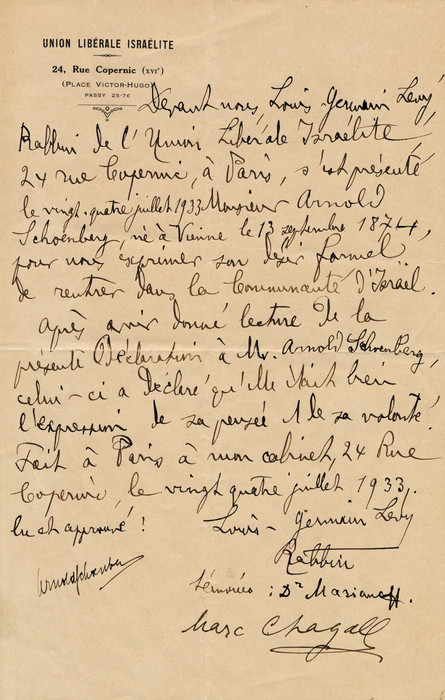 UNION LIBÉRALE ISRAÉLITE
24, Rue Copernic (XVIᵉ)
(PLACE VICTOR-HUGO)
PASSY 25-76
Devant nous, Louis Germain Lévy,
Rabbin de l'Union Libérale Israélite,
24 rue Copernic, à Paris, s'est présenté
le vingt-quatre juillet 1933 Monsieur Arnold
Schoenberg, né à Vienne le 13 septembre 1874,
pour nous exprimer son désir formel
de rentrer dans la Communauté d'Israël.
Après avoir donné lecture de la
présente Déclaration à Mr. Arnold Schoenberg,
celui-ci a déclaré qu'elle était bien
l'expression de sa pensée & de sa volonté.
Fait à Paris à mon cabinet, 24 Rue
Copernic, le vingt quatre juillet 1933.
lu et approuvé !
Louis-Germain Lévy
Rabbin
Arnold Schoenberg
témoins : Dr Marianoff.
Marc Chagall